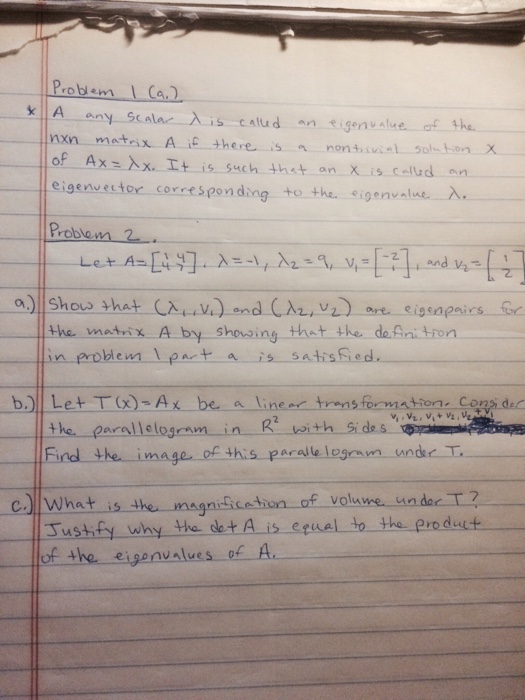 Problem 1 (a.)
* A any scalar λ is called an eigenvalue of the
nxn matrix A if there is a nontrivial solution x
of Ax = λx. It is such that an x is called an
eigenvector corresponding to the eigenvalue λ.
Problem 2.
Let A = [1 4; 4 7], λ = -1, λ₂ = 9, v₁ = [-2; 1], and v₂ = [1; 2]
a.) Show that (λ₁, v₁) and (λ₂, v₂) are eigenpairs for
the matrix A by showing that the definition
in problem 1 part a is satisfied.
b.) Let T(x) = Ax be a linear transformation. Consider
the parallelogram in R² with sides v₁, v₂, v₁+v₂, v₂+v₁
Find the image of this parallelogram under T.
c.) What is the magnification of volume under T?
Justify why the det A is equal to the product
of the eigenvalues of A.